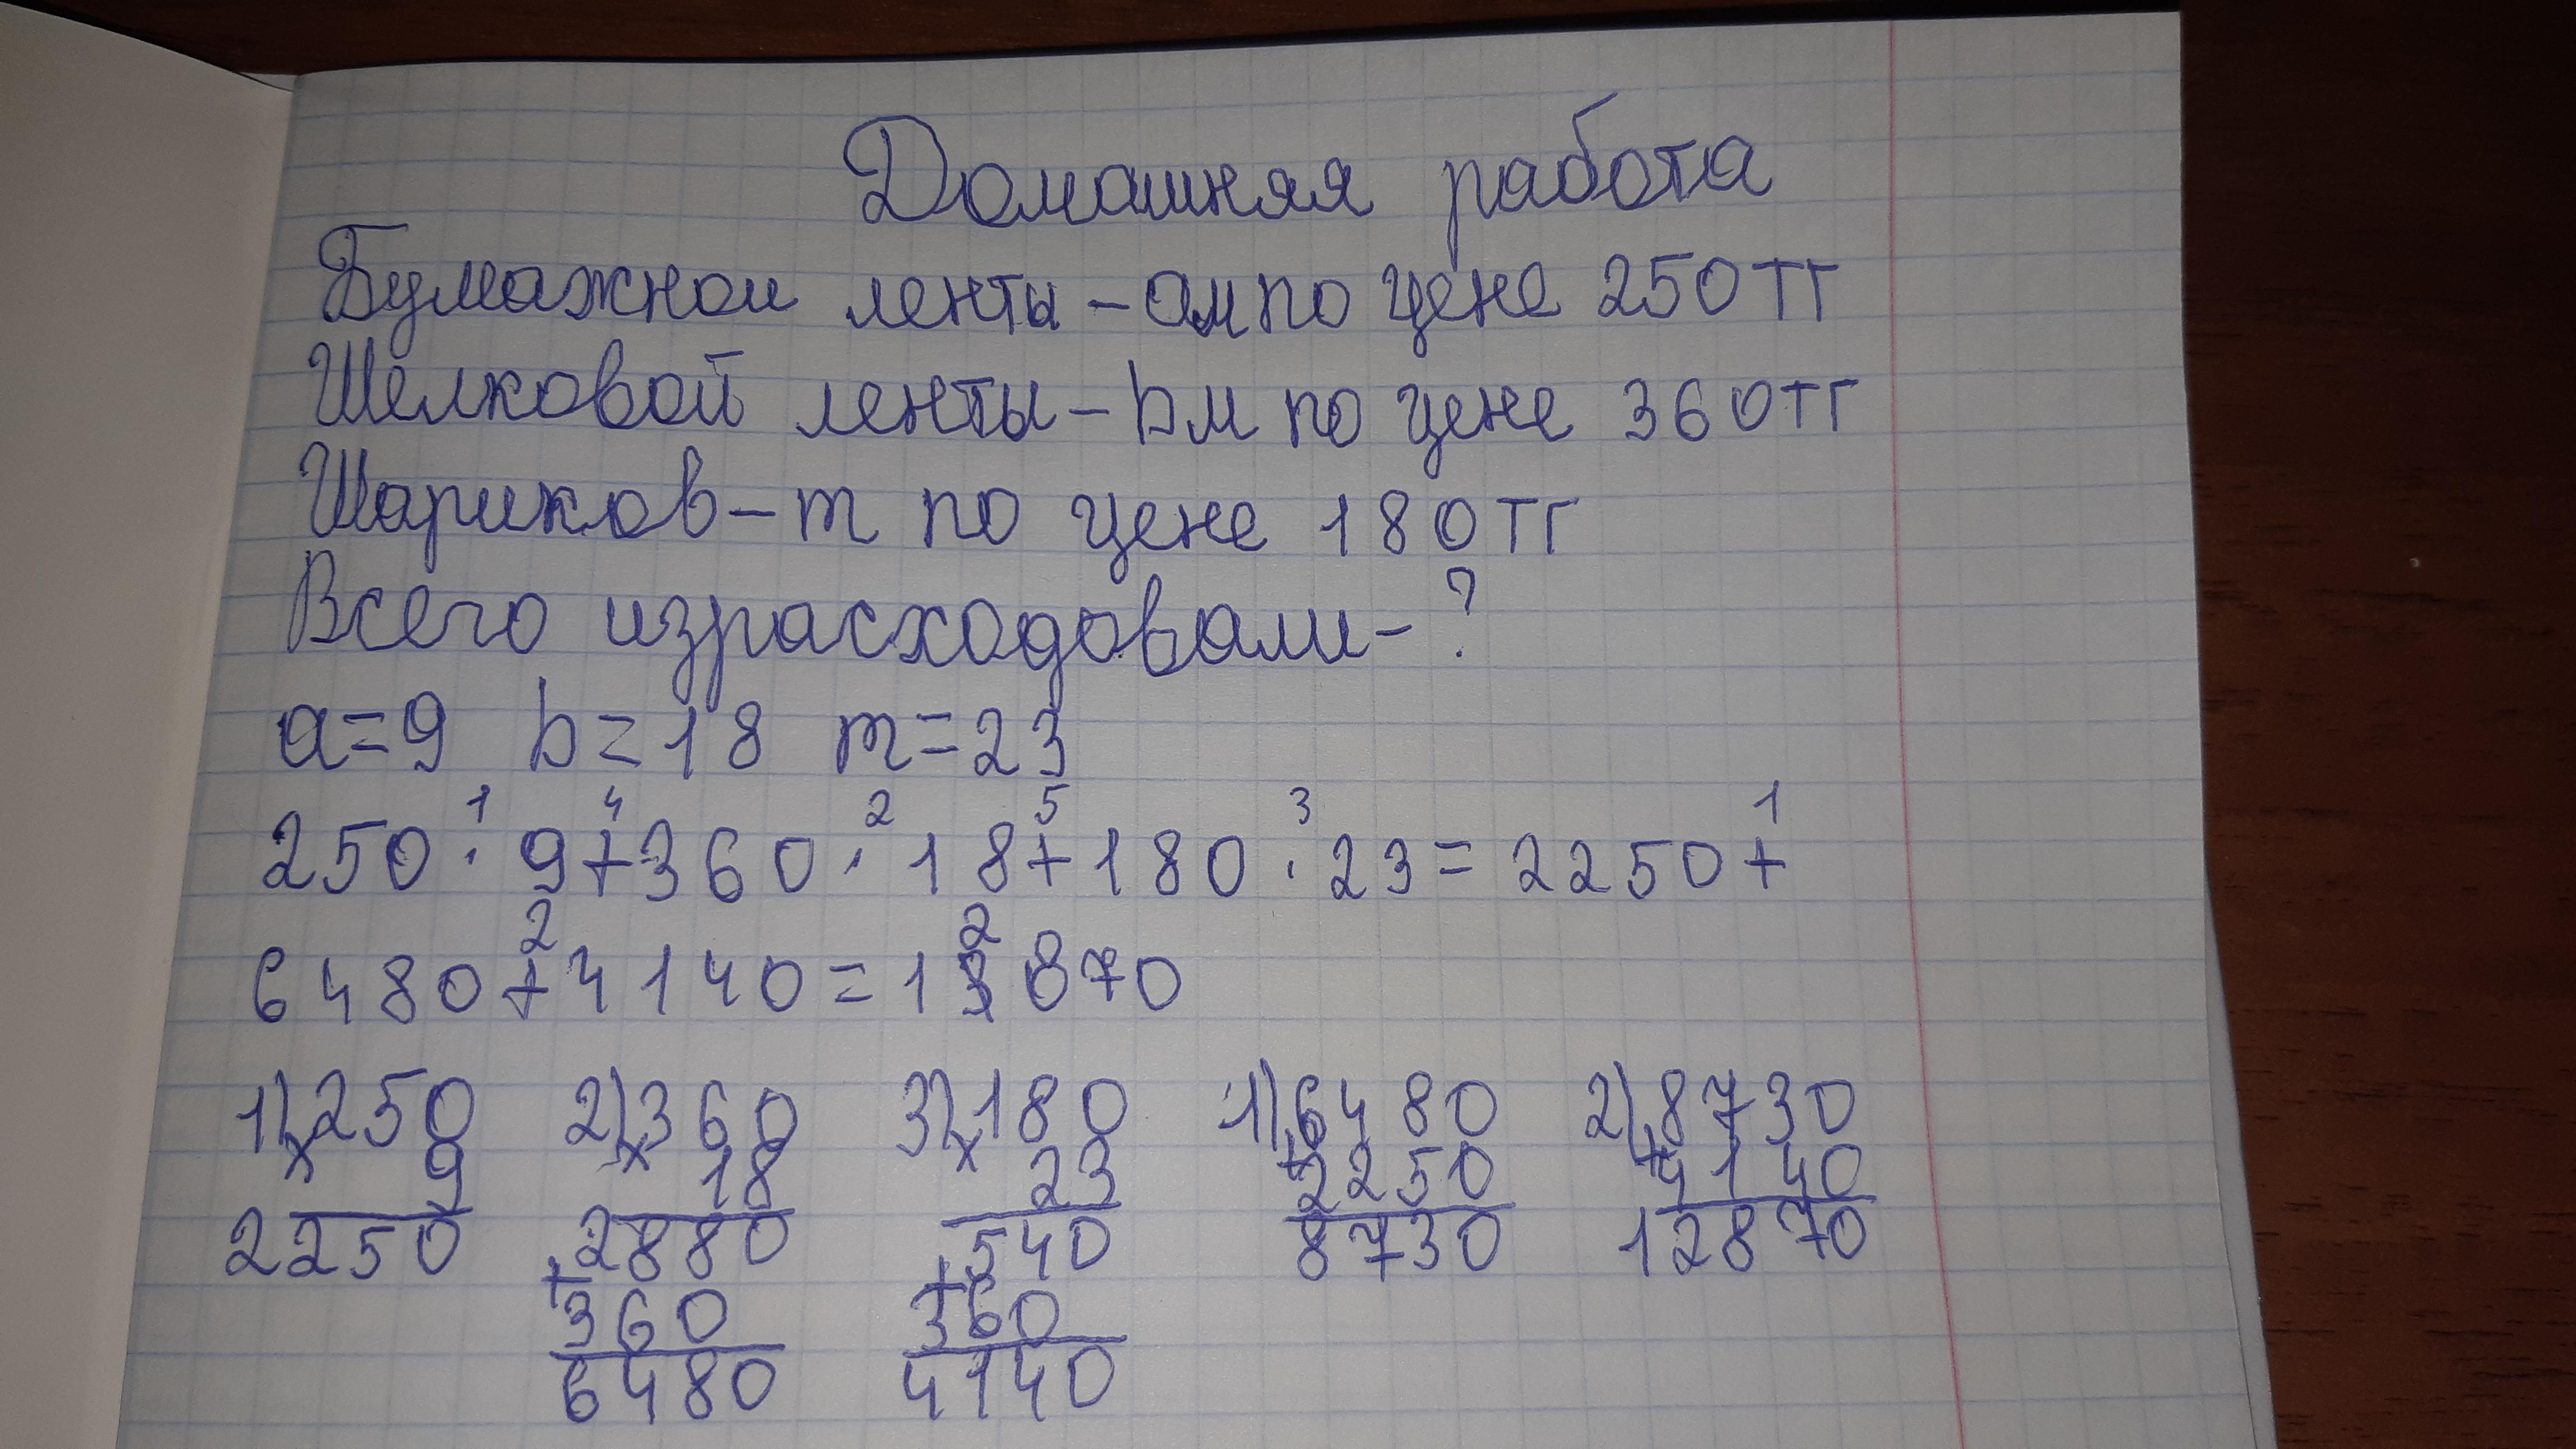 Домашняя работа
Бумажнои ленты - ам по цене 250 тг
Шелковой ленты - bм по цене 360 тг
Шариков - m по цене 180 тг
Всего израсходовали - ?
a=9 b=18 m=23
1 4 2 5 3 1
250 · 9+360 · 18+180 · 23=2250+
2 2
6480+4140=1 870
1) 250 2) 360 3) 180 1) 6480 2) 8730
× 9 × 18 × 23 + 2250 + 4140
2250 2880 540 8730 12870
+ 360 + 360
6480 4140